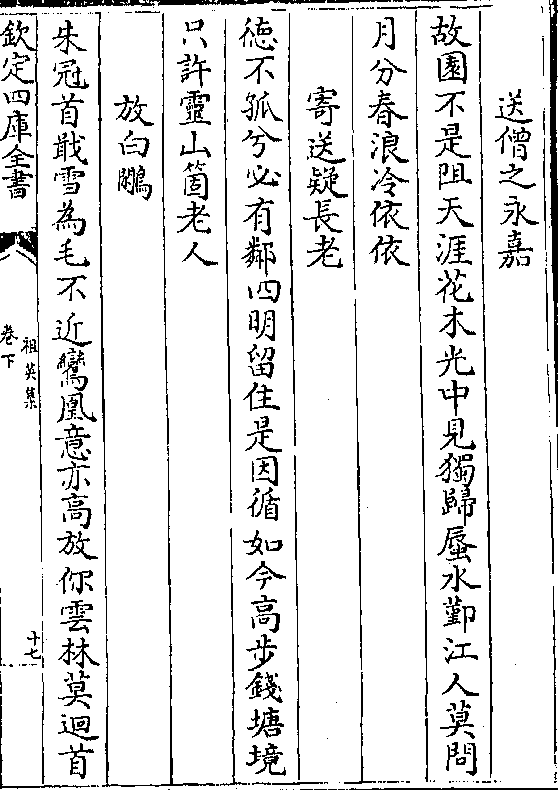 送僧之永嘉
故園不是阻天涯花木光中見獨歸蜃水勤江人莫問
月分春浪冷依依
寄送疑長老
徳不孤兮必有鄰四明留住是因循如今高步錢塘境
只許靈山箇老人
放白鷴
朱冠首戢雪為毛不近鸞凰意亦高放你雲林莫迴首
欽定四庫全書
祖英集
卷下
十七